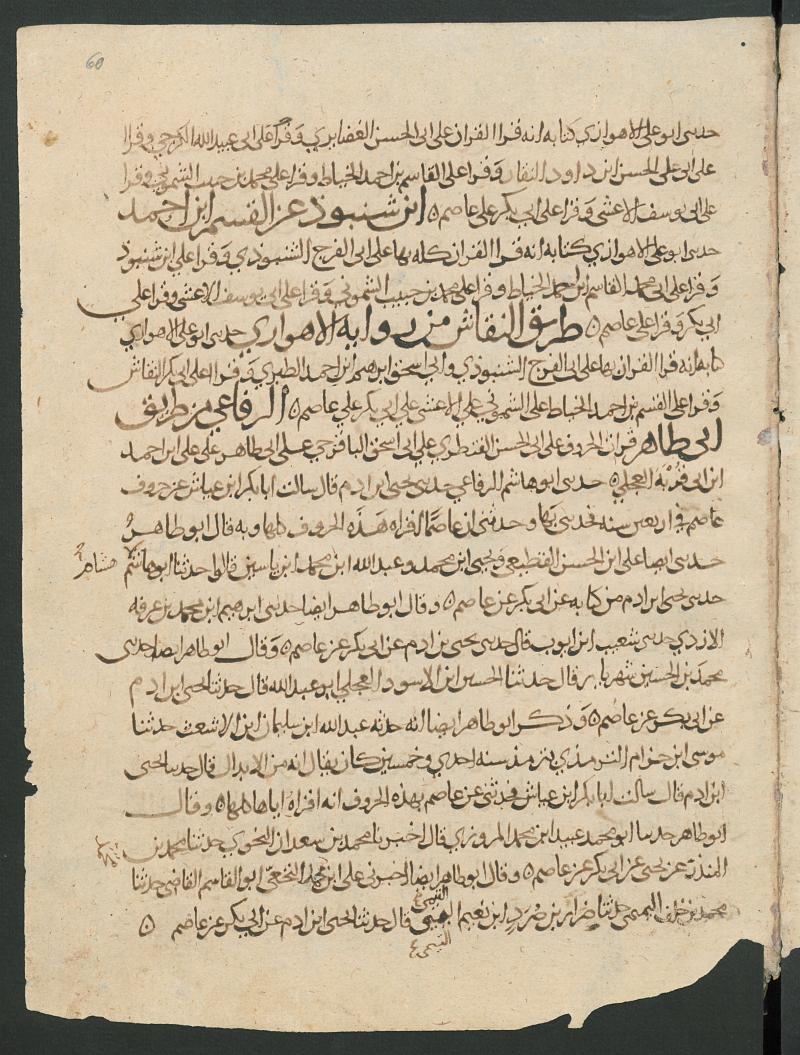 60
حدثني ابو علي الاهوازي كتابة انه قرا القران على ابي الحسن الغضايري وقرا على ابي عبيد الله الكرجي وقرا
على ابو علي الحسن ابن داود النقار وقرا على القاسم بن احمد الخياط وقرا على محمد بن حبيب الشموني وقرا
على ابي يوسف الاعشى وقرا على ابي بكر على عاصم ٥ ابن شنبوذ عن القسم ابن احمد
حدثني ابو علي الاهوازي كتابة انه قرا القران كله بها على ابي الفرج الشنبوذي وقرا على ابن شنبوذ
وقرا على ابي محمد القاسم ابن احمد الخياط وقرا على محمد بن حبيب الشموني وقرا على ابي يوسف الاعشى وقرا على
ابي بكر وقرا على عاصم ٥ طريق النقاش من رواية الاهوازي حدثني ابو علي الاهوازي
كتابة انه قرا القران بها على ابي الفرج الشنبوذي وابي اسحق ابرهيم ابن احمد الطبري وقرا على ابي بكر النقاش
وقرا على القسم بن احمد الخياط على الشموني على الاعشى على ابي بكر على عاصم ٥ الرفاعي من طريق
ابي طاهر قرات الحروف على ابي الحسن القنطري على ابي اسحق الباقرحي على ابي طاهر على علي ابن احمد
ابن ابي قربة العجلي ٥ حدثني ابو هاشم الرفاعي حدثني يحيى ابن ادم قال سالت ابا بكر ابن عياش عن حروف
عاصم في اربعين سنة فحدثني بها وحدثني ان عاصما اقراه هذه الحروف كلها وبه قال ابو طاهر
حدثني ايضا علي ابن الحسن القطيعي ويحيى ابن محمد وعبد الله ابن محمد ابن ياسين قالوا حدثنا ابو هاشم هشام
حدثني يحيى ابن ادم من كتابه عن ابي بكر عن عاصم ٥ وقال ابو طاهر ايضا حدثني ابرهيم ابن محمد بن عرفة
الازدي حدثني شعيب ابن ايوب قال حدثني يحيى بن ادم عن ابي بكر عن عاصم ٥ وقال ابو طاهر ايضا حدثني
محمد بن الحسين شهريار قال حدثنا الحسين ابن الاسود العجلي ابو عبد الله قال حدثنا يحيى ابن ادم
عن ابي بكر عن عاصم ٥ وذكر ابو طاهر ايضا انه حدثه عبد الله ابن سليمان ابن الاشعث حدثنا
موسى ابن حزام الترمذي بترمذ سنة احدى وخمسين كان يقال انه من الابدال قال حدثنا يحيى
ابن ادم قال سالت ابا بكر ابن عياش فحدثني عن عاصم بهذه الحروف انه اقراه اياها كلها ٥ وقال
ابو طاهر حدثنا ابو محمد عبيد ابن محمد المروزي قال اخبرنا محمد بن سعدان النحوي حدثنا محمد بن
المنذر عن يحيى عن ابي بكر عن عاصم ٥ وقال ابو طاهر ايضا اخبرني علي ابن محمد النخعي ابو القاسم القاضي حدثنا
محمد بن خلف التيمي حدثنا ضرار بن صرد ابن نعيم التيمي قال حدثنا يحيى ابن ادم عن ابي بكر عن عاصم ٥
التيمي